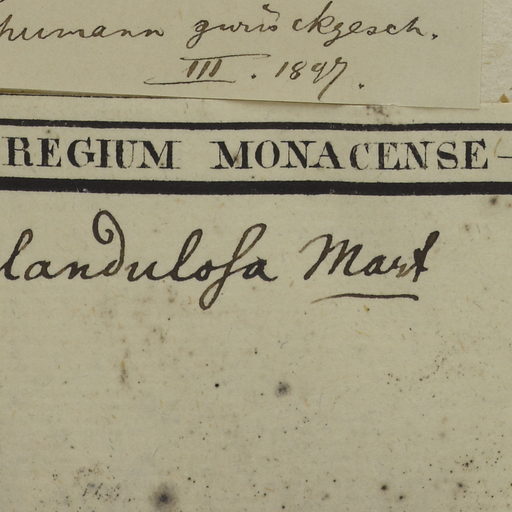 humann zurückgesch.
III. 1897.
REGIUM MONACENSE
landulosa Mart